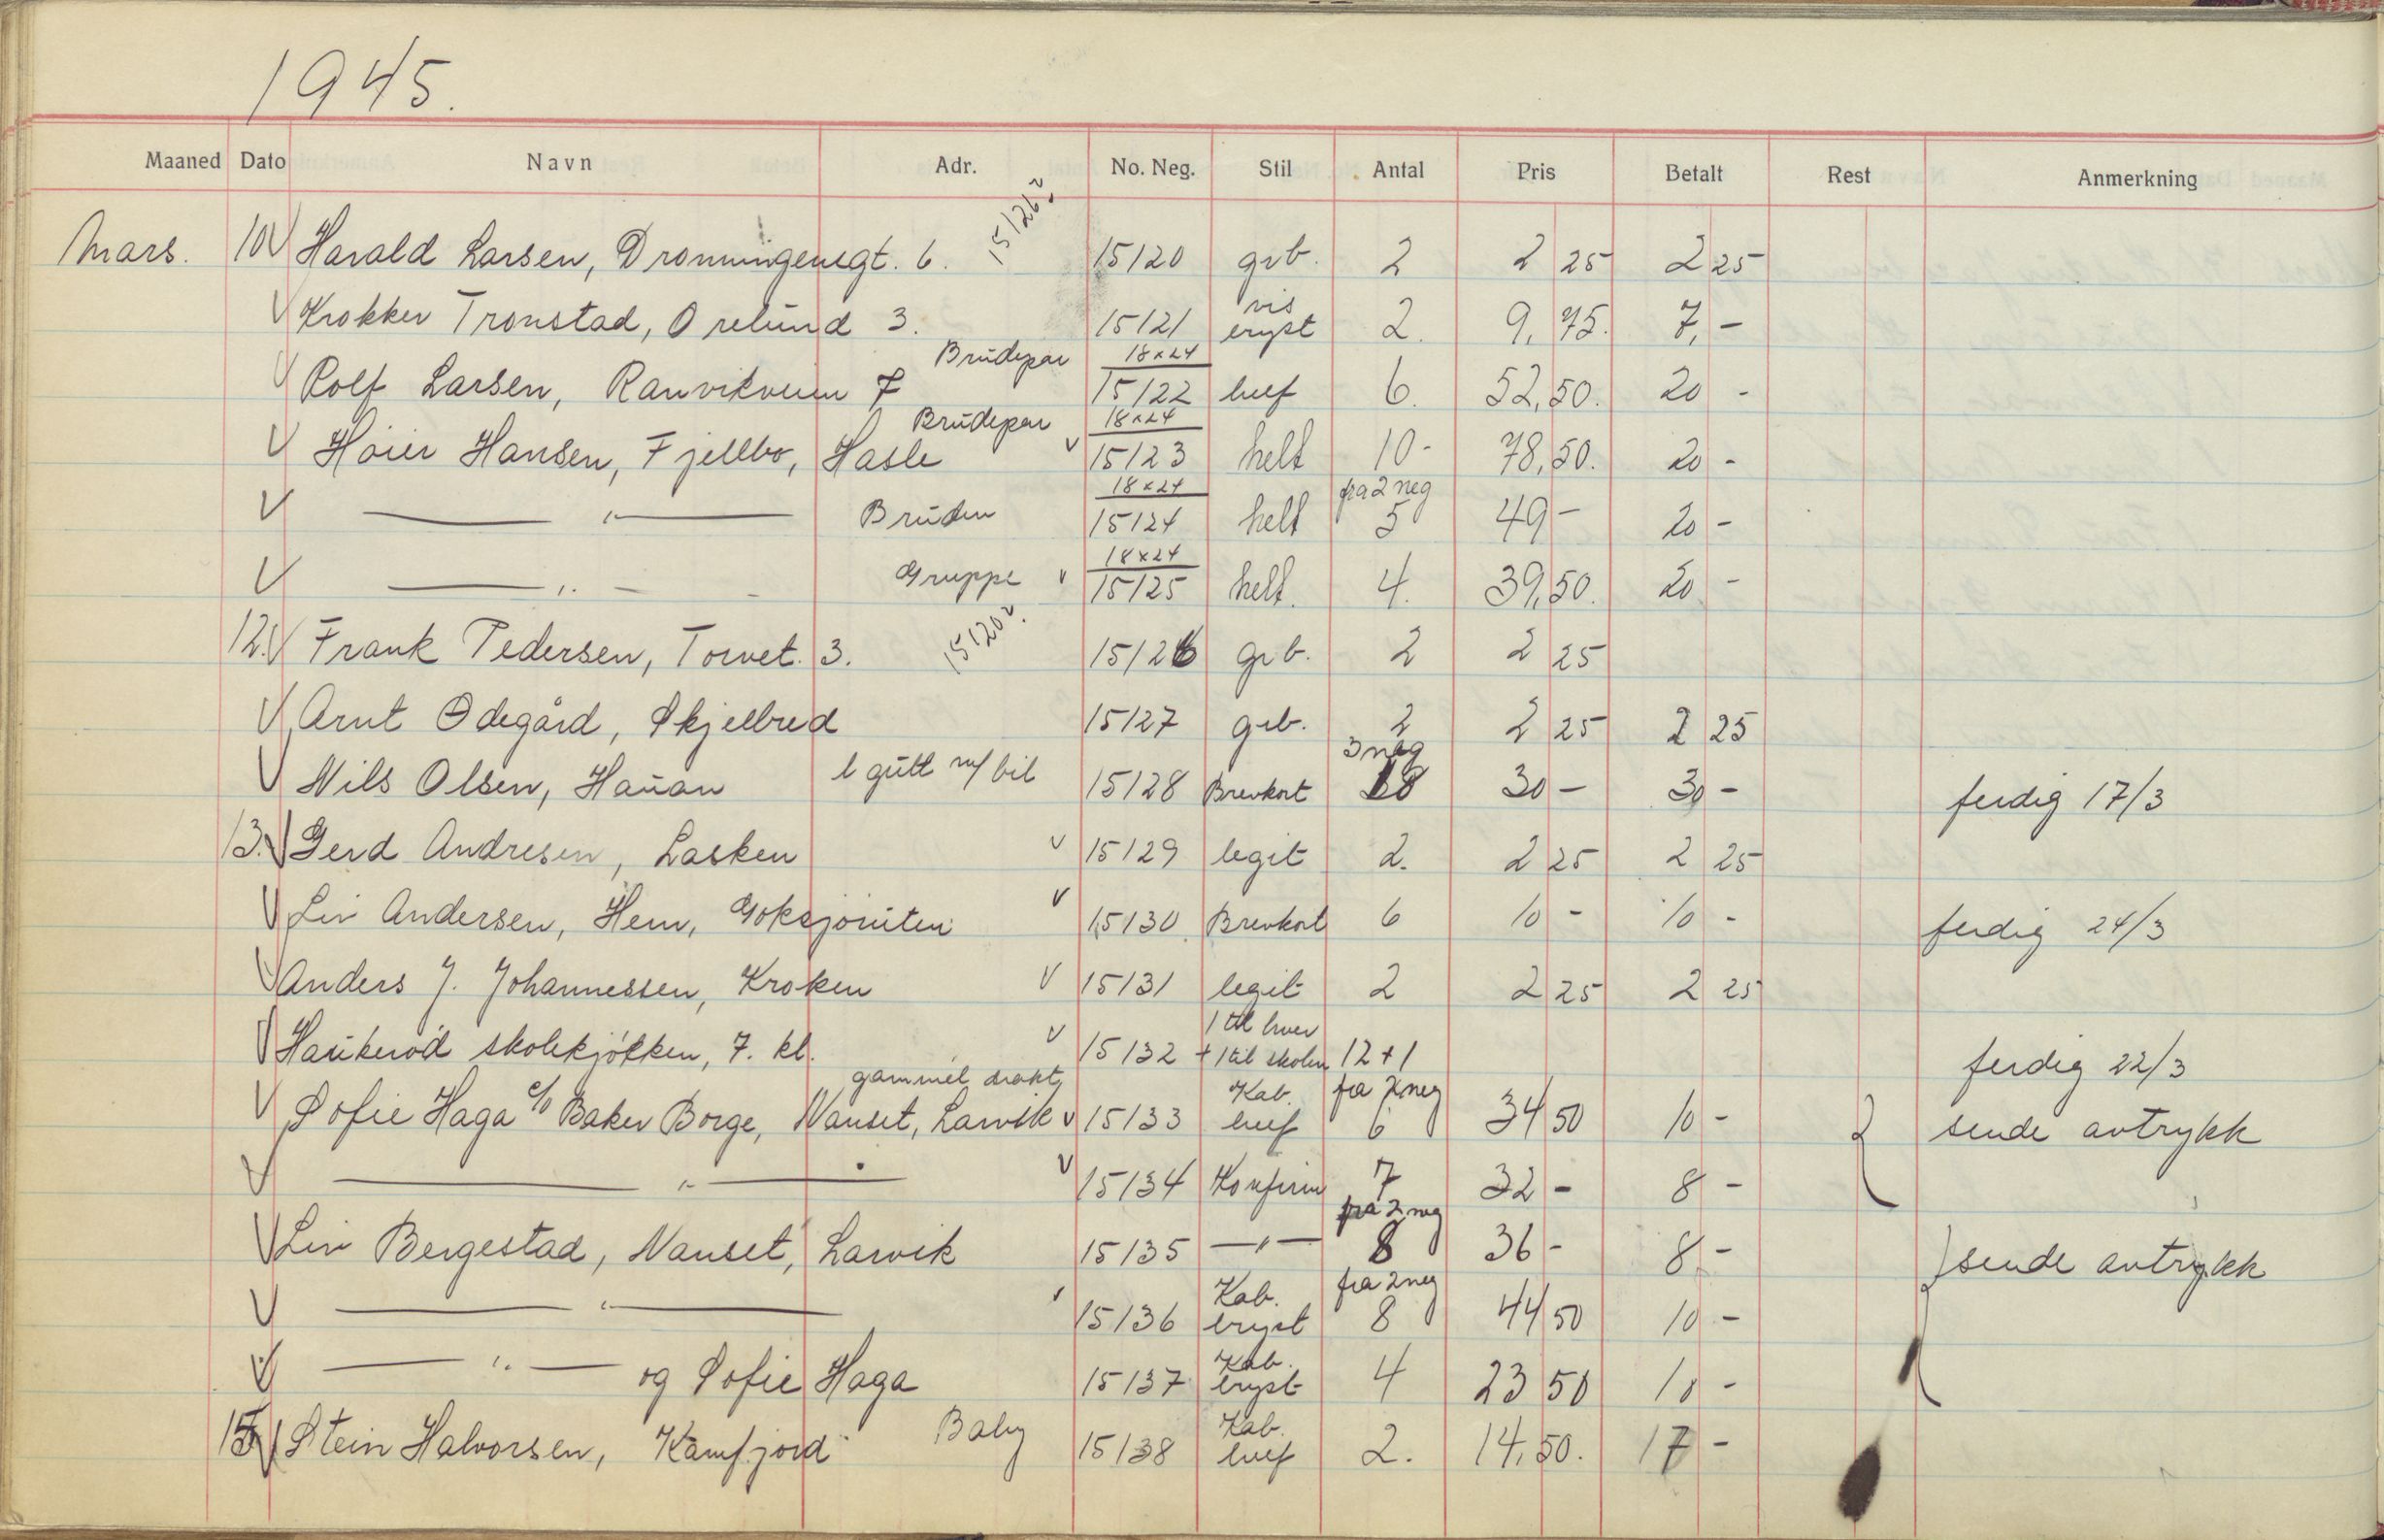 1945.
Maaned Dato Navn Adr. No. Neg. Stil Antal Pris Betalt Rest Anmerkning
Mars. 10 V Harald Larsen, Dronningensgt. 6. 15126 v 15120 grb. 2 2 25 2 25
V Krokker Tronstad, Orelund 3. 15121 vis bryst 2. 9,75. 7,-
V Rolf Larsen, Ranvikveien 7 Brudepar 18x24 15122 huf 6. 52,50. 20 -
V Høier Hansen, Fjellbo, Hasle Brudepar v 18x24 15123 helf 10- 78,50. 20 -
V — " — Bruden 18x24 15124 helf fra 2 neg 5 49 - 20 -
V — " — Gruppe v 18x24 15125 helf. 4. 39,50. 20 -
12. V Frank Pedersen, Torvet. 3. 15120 v. 15126 grb. 2 2 25
V Arnt Ødegård, Skjelbred 15127 grb. 2 2 25 2 25
V Nils Olsen, Hauan 1 gutt m/ bil 15128 Brevkort 3 neg 18 30 - 30 - ferdig 17/3
13. V Gerd Andresen, Lasken v 15129 legit 2. 2 25 2 25
V Liv Andersen, Hem, v 15130. Brevkort 6 10 - 10 - ferdig 24/3
V Anders J. Johannessen, Kroken v 15131 legit 2 2 25 2 25
V Haukerød skolekjøkken, 7. kl. v 15132 1 til hver + 1 til skolen 12 + 1 ferdig 22/3
V Sofie Haga c/o Baker Borge, Nanset, Larvik gammel drakt v 15133 Kab. huf fra 2 neg 6 34 50 10 - sende avtrykk
V — " — v 15134 Konfirm 7 32 - 8 -
V Liv Bergestad, Nanset, Larvik 15135 — " — fra 2 neg 8 36 - 8 - sende avtrykk
V — " — 15136 Kab. bryst fra 2 neg 8 44 50 10 -
V — " — og Sofie Haga 15137 Kab. bryst 4 23 50 10 -
15 V Stein Halvorsen, Kamfjord Baby 15138 Kab. huf 2. 14,50. 17 -